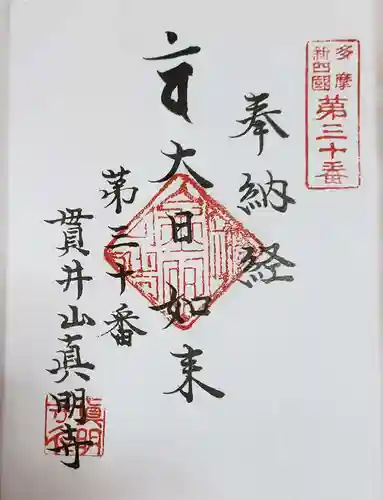 多摩
新四國
第三十番
奉納経
大日如来
第三十番
貫井山真明寺